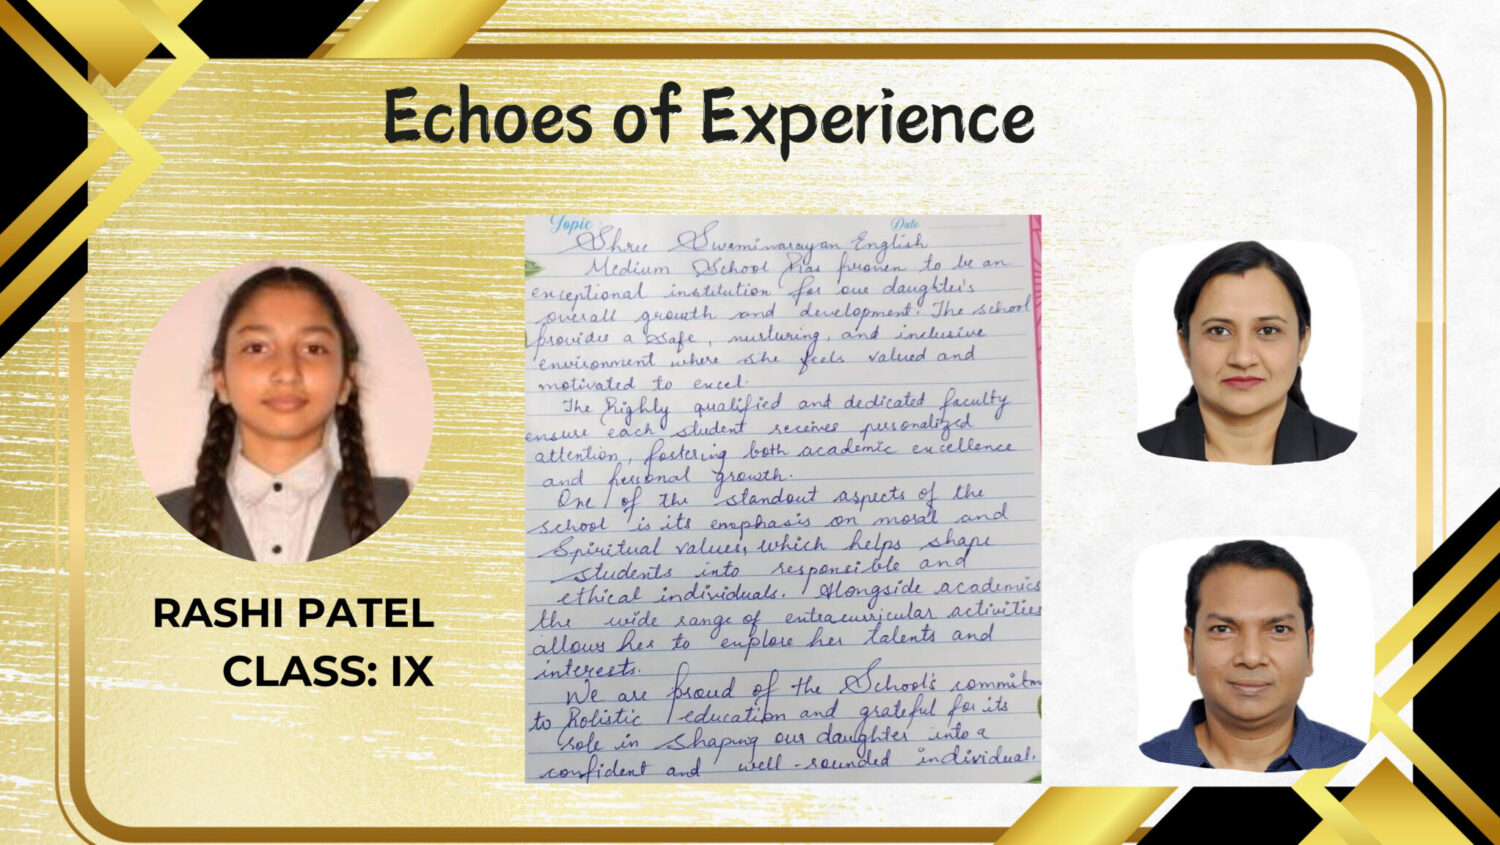 Echoes of Experience
Topic :
Date
Shree Swaminarayan English
Medium School has proven to be an
exceptional institution for our daughter's
overall growth and development. The school
provides a safe, nurturing, and inclusive
environment where she feels valued and
motivated to excel.
The highly qualified and dedicated faculty
ensure each student receives personalized
attention, fostering both academic excellence
and personal growth.
One of the standout aspects of the
school is its emphasis on moral and
Spiritual values, which helps shape
students into responsible and
ethical individuals. Alongside academics
the wide range of extracurricular activities
allows her to explore her talents and
interests.
We are proud of the School's commitm
to holistic education and grateful for its
role in shaping our daughter into a
confident and well-rounded individual.
RASHI PATEL
CLASS: IX